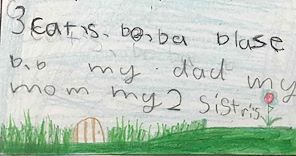 3 Cat,s. bo,ba blase
b,b my dad my
mom my 2 sistris